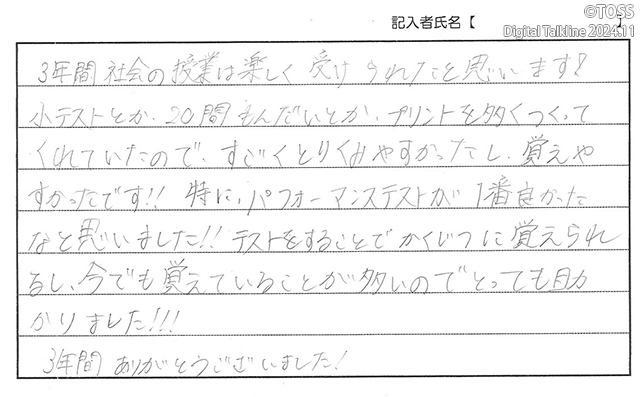 ©TOSS
記入者氏名【 】
Digital Talkline 2024.11
3年間 社会の授業は楽しく 受けられたと思います!
小テストとか、20問もんだいとか、プリントを多くつくって
くれていたので、すごくとりくみやすかったし、覚えや
すかったです!! 特に、パフォーマンステストが 1番良かった
なと思いました!! テストをすることでかくじつに覚えられ
るし、今でも覚えていることが多いのでとっても助
かりました!!!
3年間 ありがとうございました!